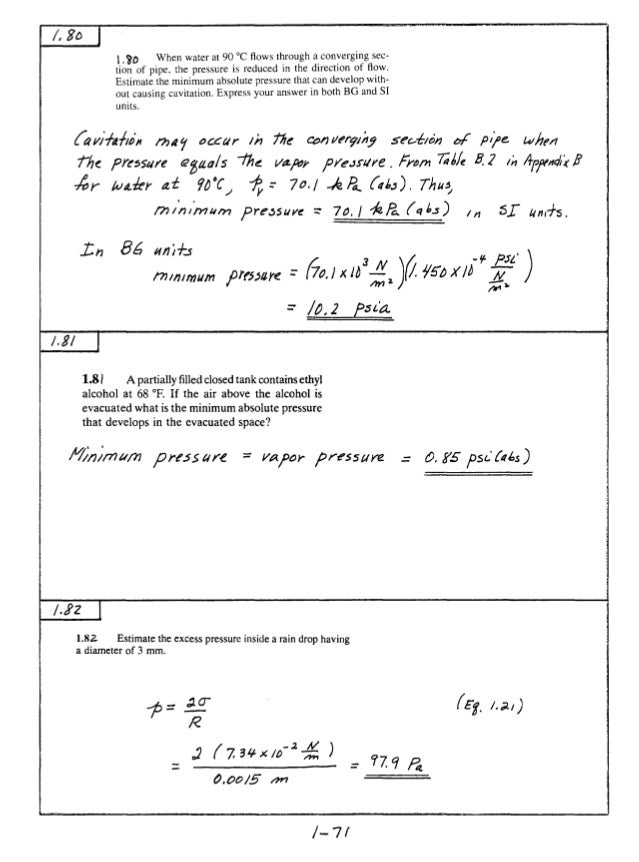 1.80
1.80 When water at 90 °C flows through a converging sec-
tion of pipe, the pressure is reduced in the direction of flow.
Estimate the minimum absolute pressure that can develop with-
out causing cavitation. Express your answer in both BG and SI
units.
Cavitation may occur in the converging section of pipe when
the pressure equals the vapor pressure. From Table B.2 in Appendix B
for water at 90°C, p_v = 70.1 kPa (abs). Thus,
minimum pressure = 70.1 kPa (abs) in SI units.
In BG units
minimum pressure = (70.1 x 10^3 N/m^2)(1.450 x 10^-4 psi/(N/m^2))
= 10.2 psia
1.81
1.81 A partially filled closed tank contains ethyl
alcohol at 68 °F. If the air above the alcohol is
evacuated what is the minimum absolute pressure
that develops in the evacuated space?
Minimum pressure = vapor pressure = 0.85 psi (abs)
1.82
1.82 Estimate the excess pressure inside a rain drop having
a diameter of 3 mm.
p = 2σ/R (Eq. 1.21)
= 2 (7.34 x 10^-2 N/m) / 0.0015 m = 97.9 Pa
1-71